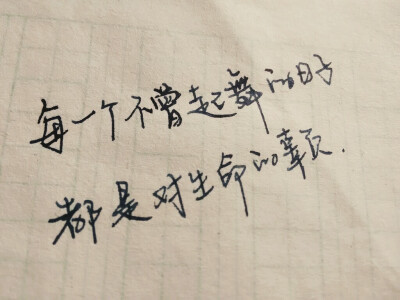 每一个不曾起舞的日子
都是对生命的辜负.